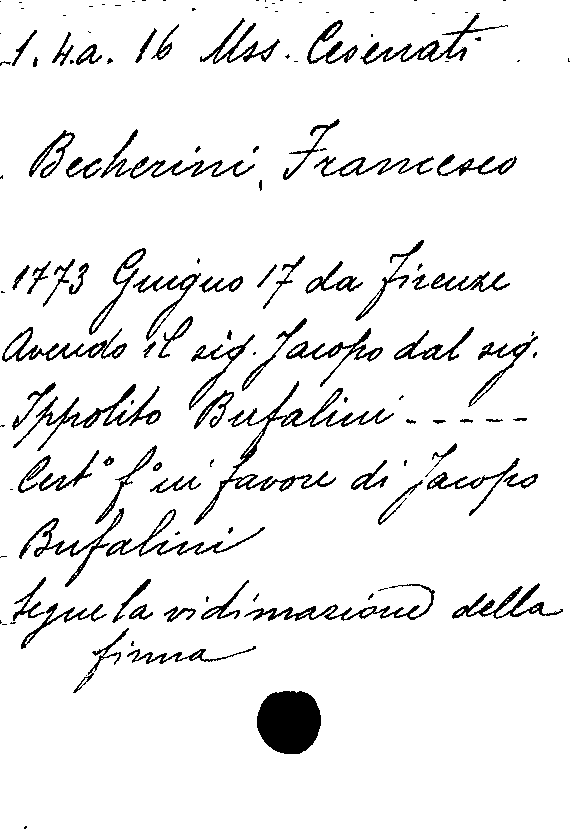 1.4.a. 16 Mss. Cesenati
Becherini, Francesco
1773 Giugno 17 da Firenze
Avendo il sig. Jacopo dal sig.
Ippolito Bufalini -----
Cert° f° in favore di Jacopo
Bufalini
Segue la vidimazione della
firma